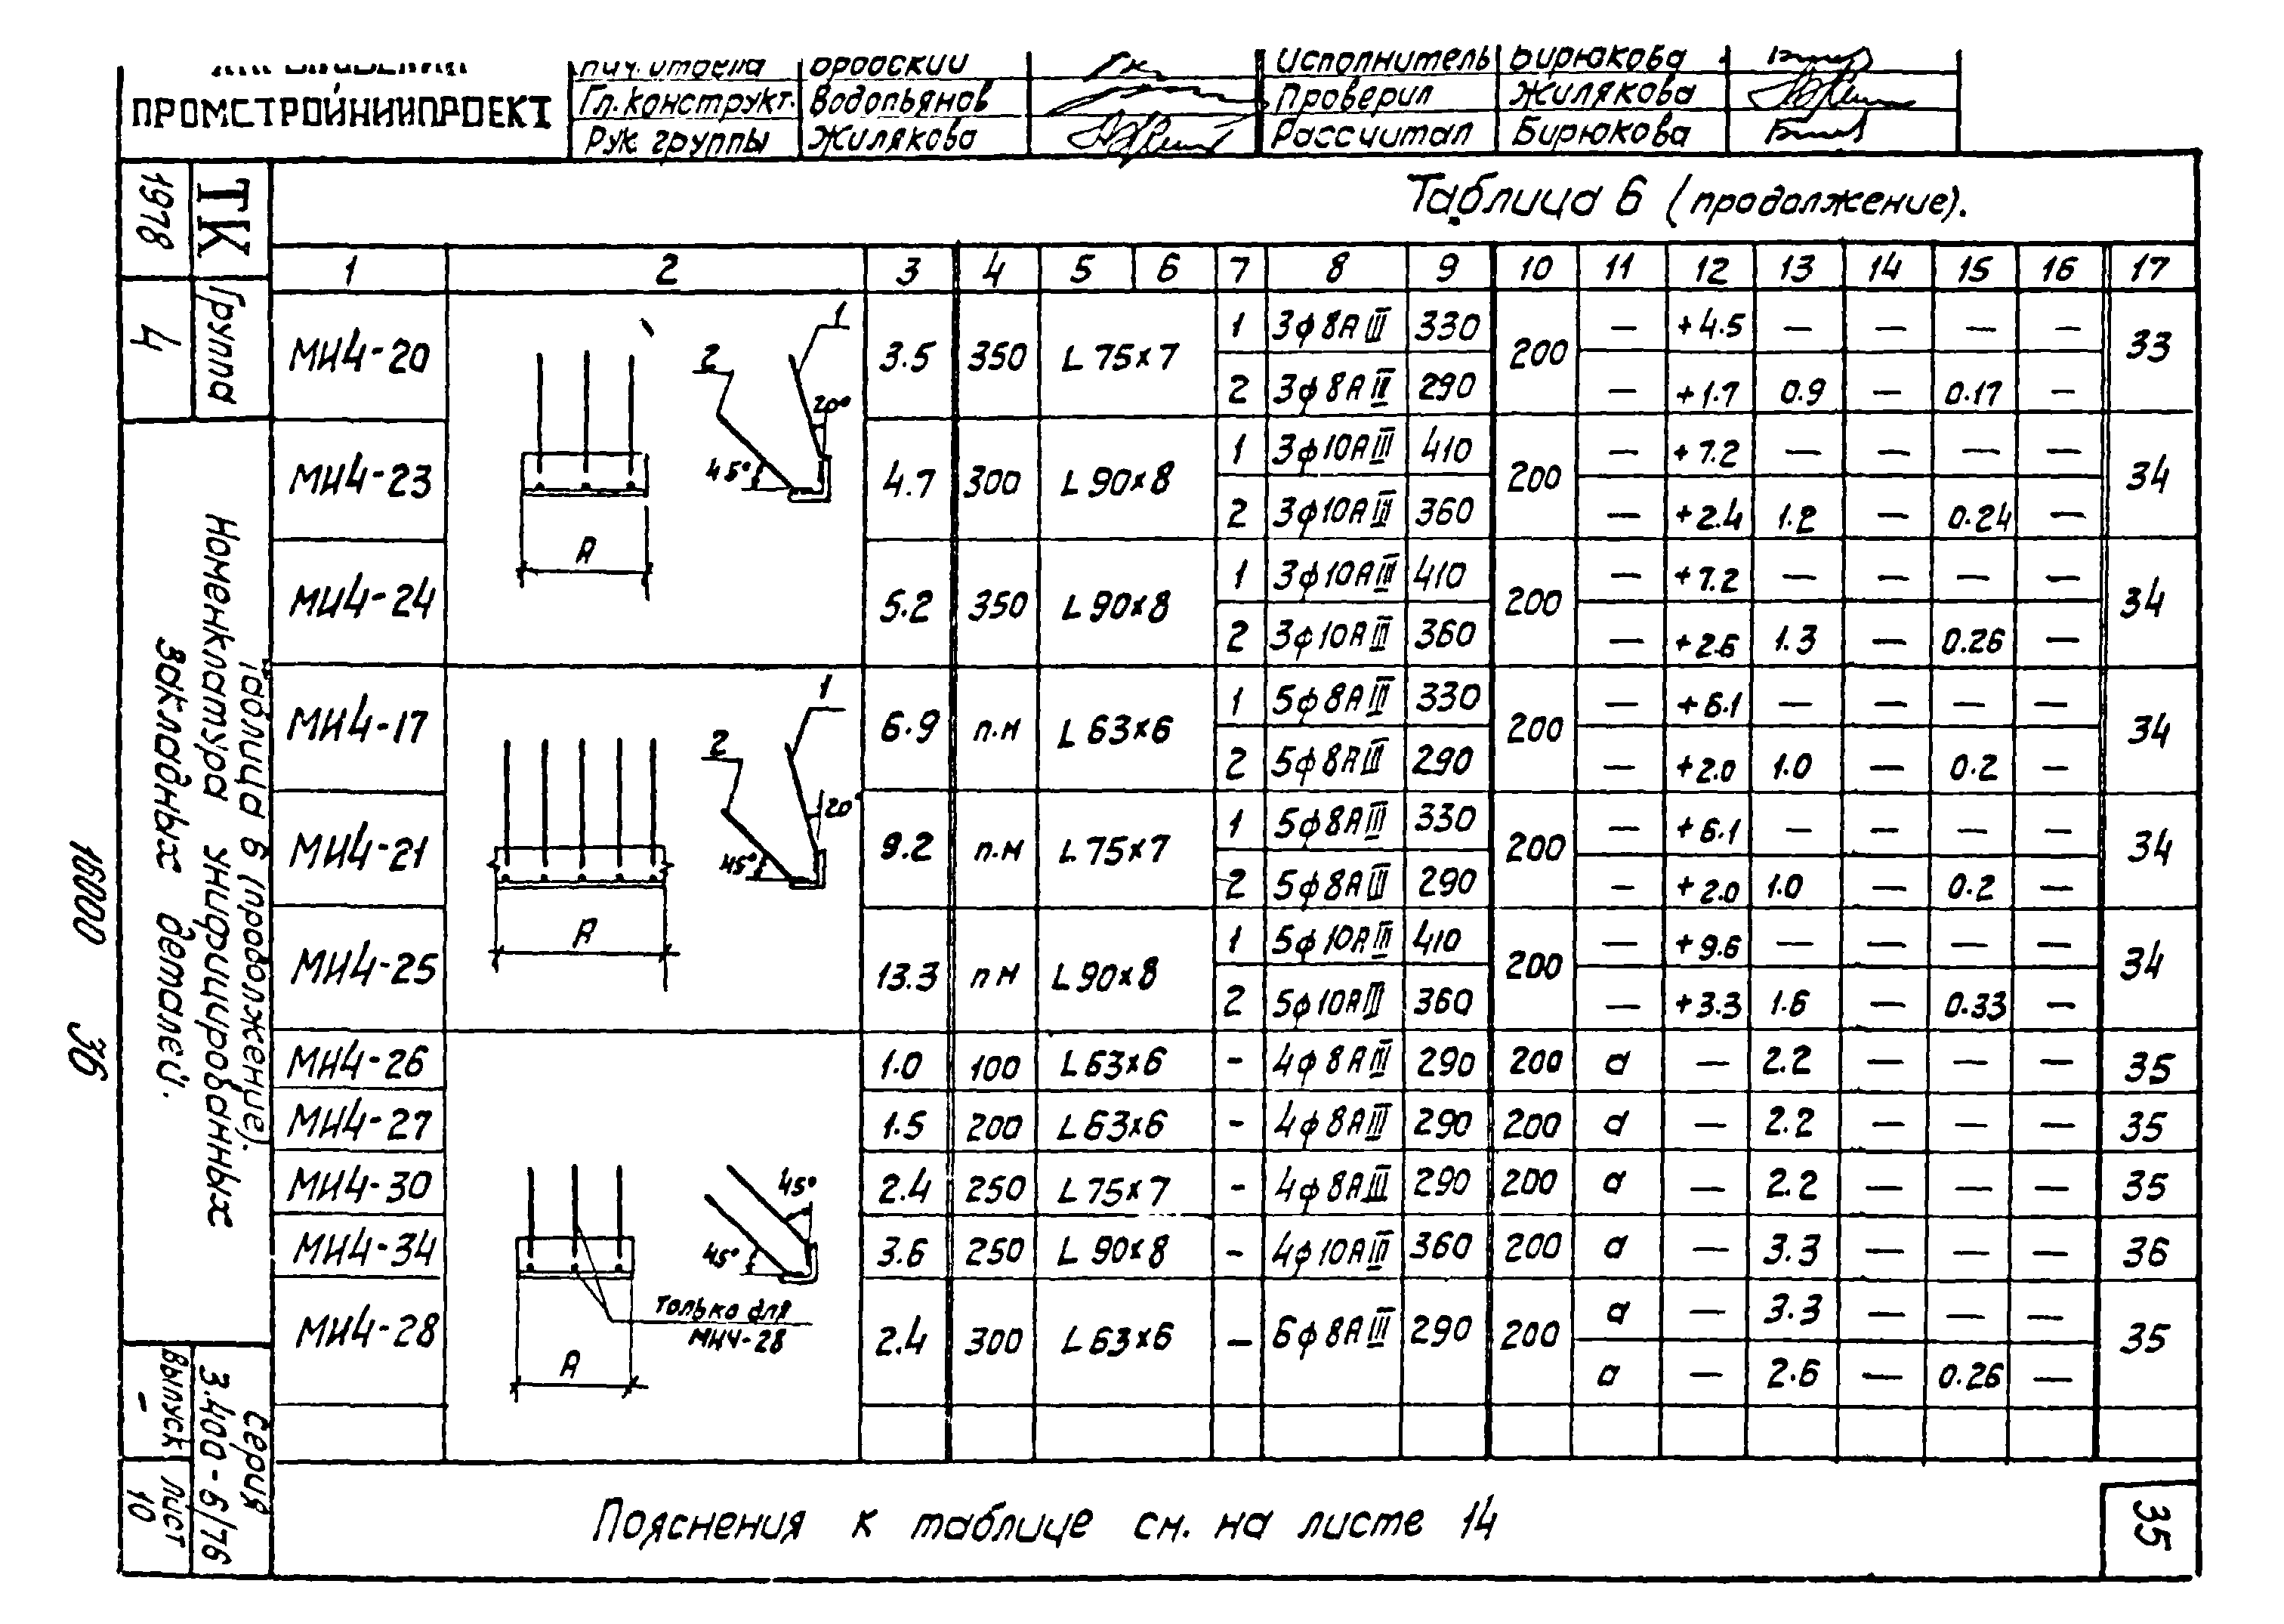 ПРОМСТРОЙНИИПРОЕКТ
Гл. конструкт. Водопьянов
Рук. группы Жилякова
Исполнитель Бирюкова
Проверил Жилякова
Рассчитал Бирюкова
ТК
1978
Группа
4
Таблица 6 (продолжение).
Номенклатура унифицированных
закладных деталей.
Серия
3.400-6/76
Выпуск Лист
- 10
16000 36
Таблица 6 (продолжение).
1 2 3 4 5 6 7 8 9 10 11 12 13 14 15 16 17
МИ4-20 3.5 350 L 75×7 200 33
1 3ф8АIII 330 — +4.5 — — — —
2 3ф8АIII 290 — +1.7 0.9 — 0.17 —
МИ4-23 4.7 300 L 90×8 200 34
1 3ф10АIII 410 — +7.2 — — — —
2 3ф10АIII 360 — +2.4 1.2 — 0.24 —
МИ4-24 5.2 350 L 90×8 200 34
1 3ф10АIII 410 — +7.2 — — — —
2 3ф10АIII 360 — +2.6 1.3 — 0.26 —
2 1 20° 45° А
МИ4-17 6.9 п.м L 63×6 200 34
1 5ф8АIII 330 — +6.1 — — — —
2 5ф8АIII 290 — +2.0 1.0 — 0.2 —
МИ4-21 9.2 п.м L 75×7 200 34
1 5ф8АIII 330 — +6.1 — — — —
2 5ф8АIII 290 — +2.0 1.0 — 0.2 —
МИ4-25 13.3 п м L 90×8 200 34
1 5ф10АIII 410 — +9.6 — — — —
2 5ф10АIII 360 — +3.3 1.6 — 0.33 —
2 1 20° 45° А
МИ4-26 1.0 100 L 63×6 - 4ф8АIII 290 200 а — 2.2 — — — 35
МИ4-27 1.5 200 L 63×6 - 4ф8АIII 290 200 а — 2.2 — — — 35
МИ4-30 2.4 250 L 75×7 - 4ф8АIII 290 200 а — 2.2 — — — 35
МИ4-34 3.6 250 L 90×8 - 4ф10АIII 360 200 а — 3.3 — — — 36
МИ4-28 2.4 300 L 63×6 — 6ф8АIII 290 200 35
а — 3.3 — — —
а — 2.6 — 0.26 —
45° 45°
только для
МИ4-28
А
Пояснения к таблице см. на листе 14
35